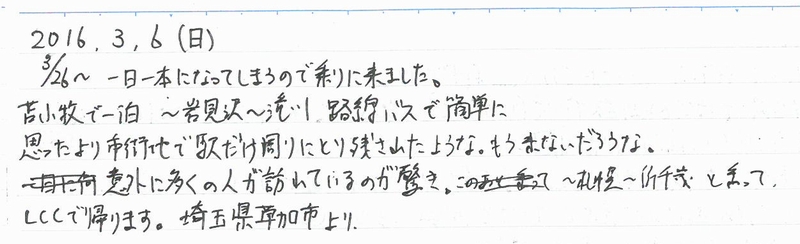 2016.3.6(日)
3/26~ 一日一本になってしまうので乗りに来ました。
苫小牧で一泊 ~岩見沢~滝川 路線バスで簡単に
思ったより市街地で駅だけ周りにとり残されたような。もう来ないだろうな。
意外に多くの人が訪れているのが驚き。~札幌~新千歳 と乗って、
LCCで帰ります。埼玉県草加市より.